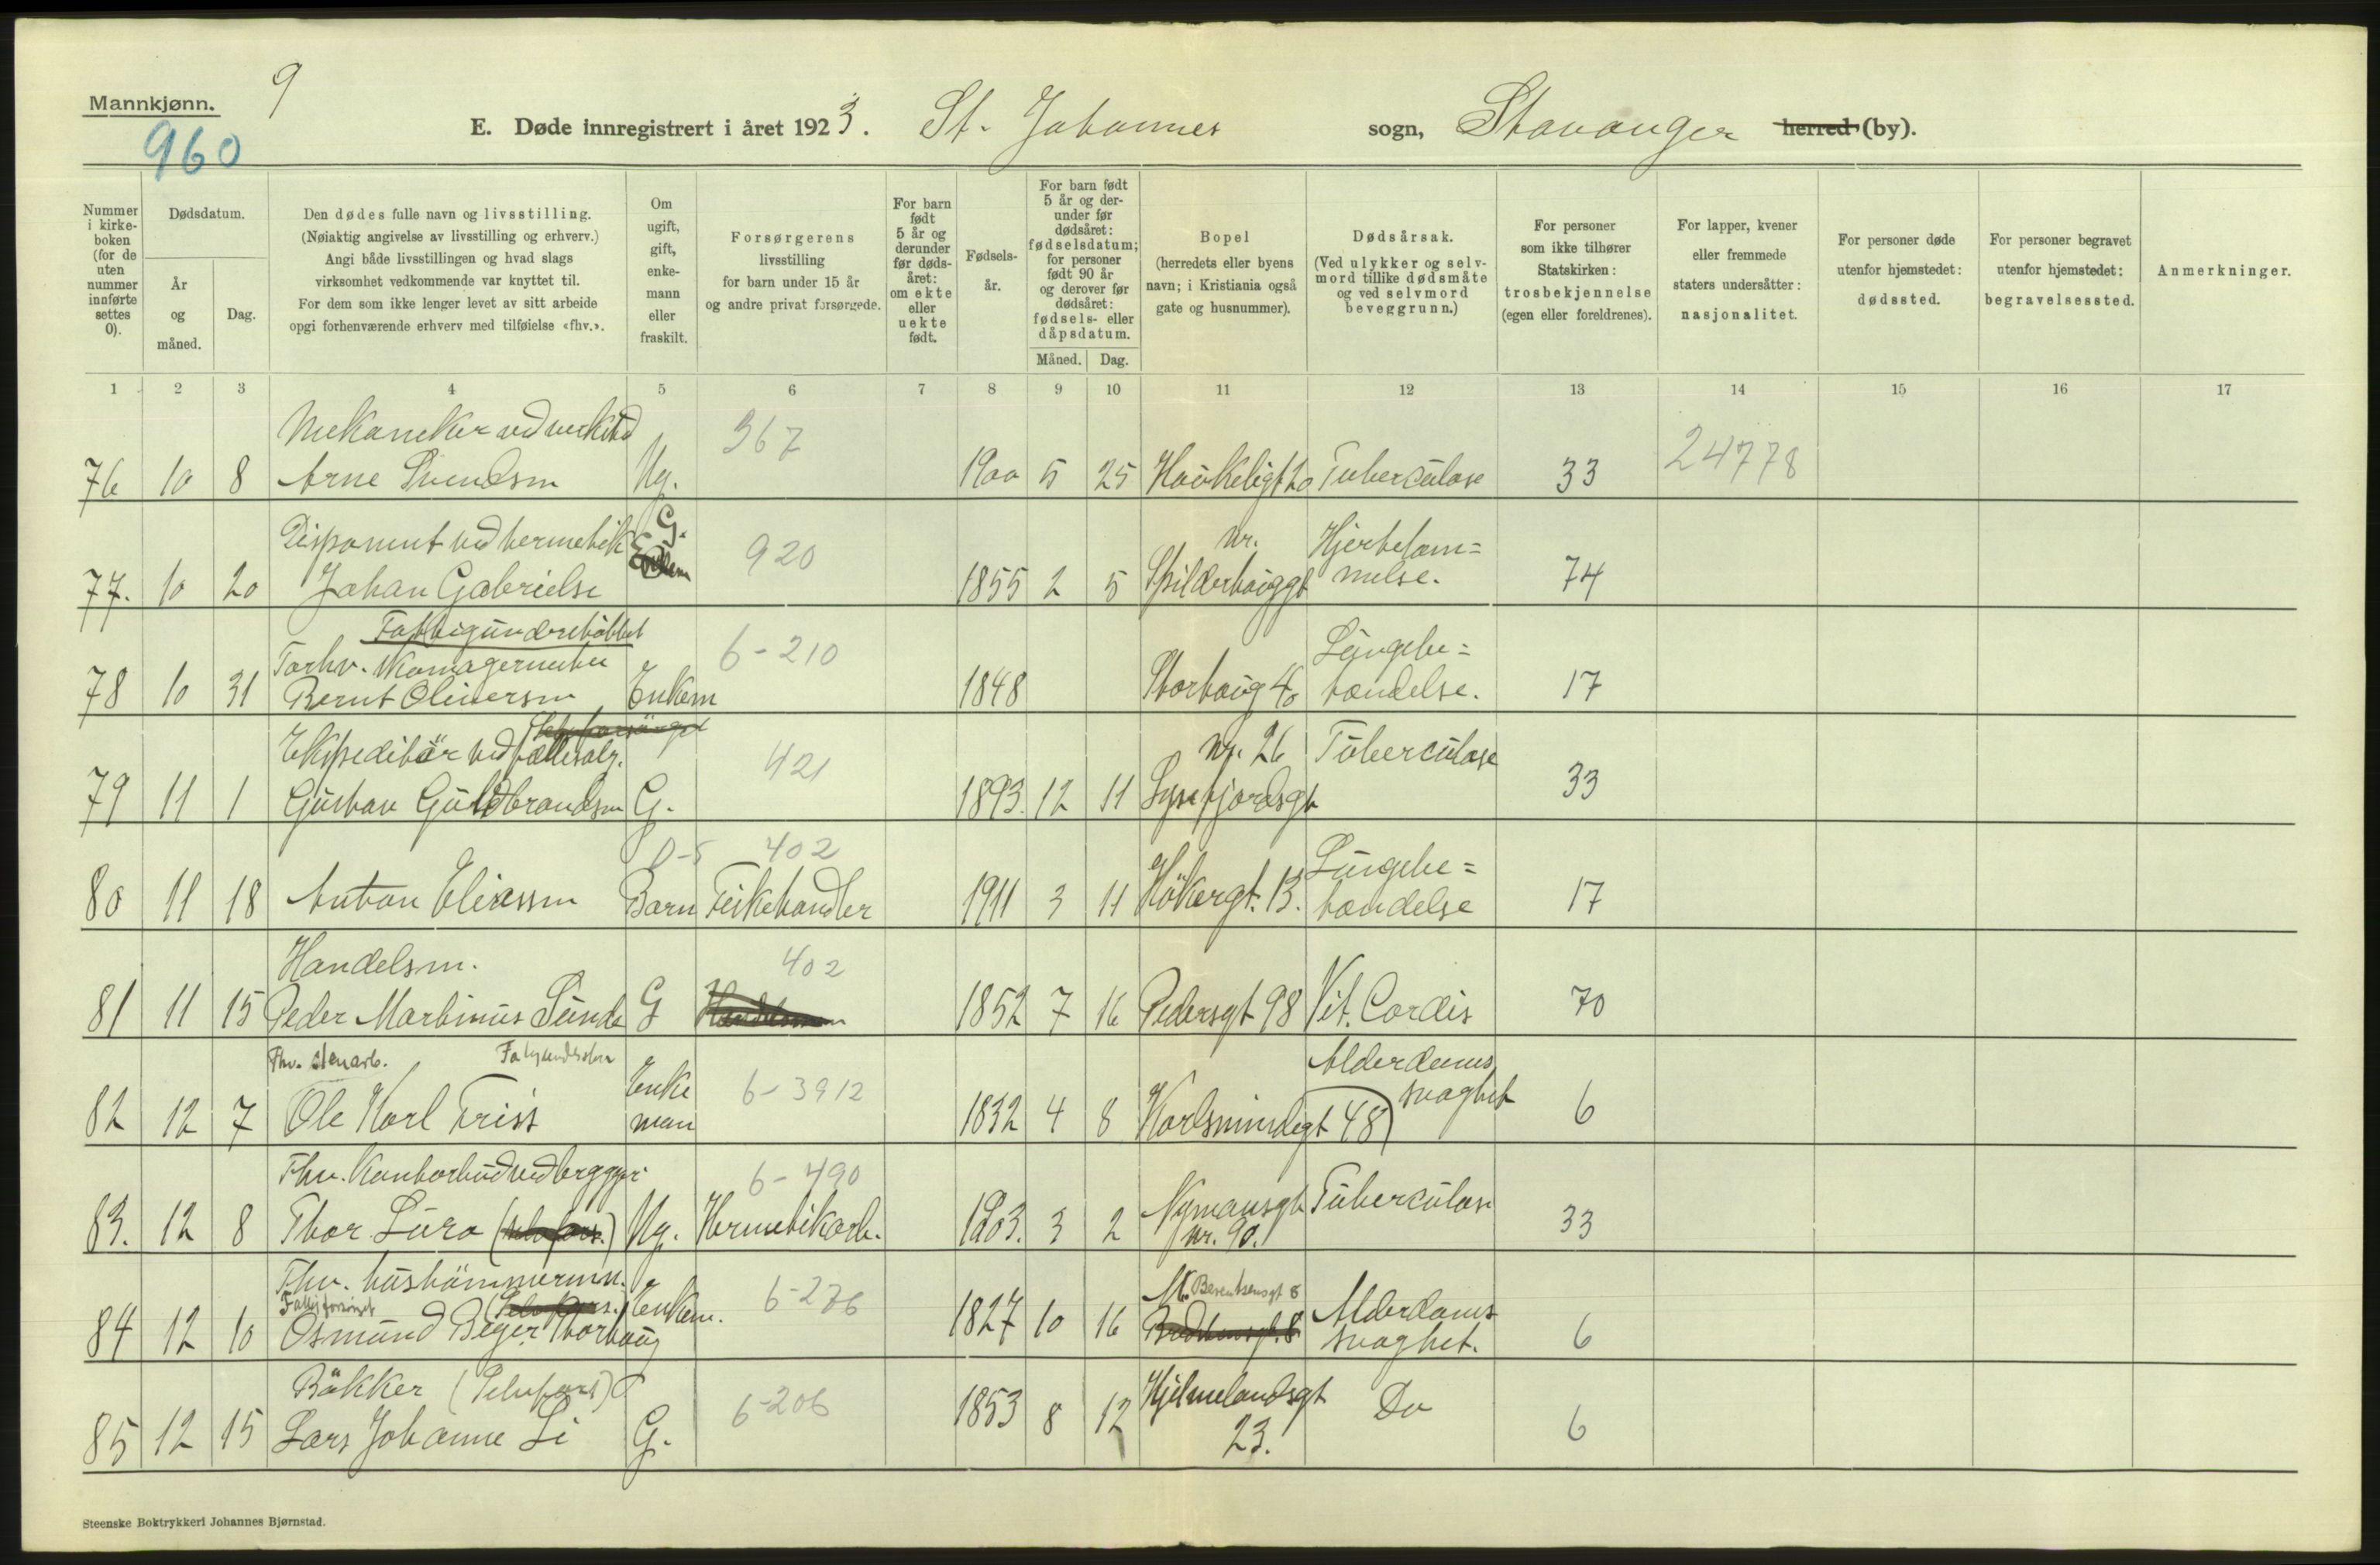 Mannkjønn.
9
960
E. Døde innregistrert i året 1923. St. Johannes sogn, Stavanger herred (by).
Nummer i kirkeboken (for de uten nummer innførte settes 0).
Dødsdatum.
År og måned.
Dag.
Den dødes fulle navn og livsstilling.
(Nøiaktig angivelse av livsstilling og erhverv.)
Angi både livsstillingen og hvad slags
virksomhet vedkommende var knyttet til.
For dem som ikke lenger levet av sitt arbeide
opgi forhenværende erhverv med tilføielse «fhv.».
Om ugift, gift, enkemann eller fraskilt.
Forsørgerens
livsstilling
for barn under 15 år
og andre privat forsørgede.
For barn født 5 år og derunder før dødsåret: om ekte eller uekte født.
Fødselsår.
For barn født 5 år og derunder før dødsåret: fødselsdatum; for personer født 90 år og derover før dødsåret: fødsels- eller dåpsdatum.
Måned. Dag.
Bopel
(herredets eller byens
navn; i Kristiania også
gate og husnummer).
Dødsårsak.
(Ved ulykker og selvmord tillike dødsmåte og ved selvmord beveggrunn.)
For personer
som ikke tilhører
Statskirken:
trosbekjennelse
(egen eller foreldrenes).
For lapper, kvener
eller fremmede
staters undersåtter:
nasjonalitet.
For personer døde
utenfor hjemstedet:
dødssted.
For personer begravet
utenfor hjemstedet:
begravelsessted.
Anmerkninger.
1 2 3 4 5 6 7 8 9 10 11 12 13 14 15 16 17
Mekaniker ved verksted 367
76 10 8 Arne Svendsen Ug. 1900 5 25 Haukeligt 20 Tuberculose 33 24778
Disponent ved hermetik G. 920 nr. Hjertelam=
77. 10 20 Johan Gabrielse 1855 2 5 Spilderhauggt melse. 74
Fattigunderstøttet
Forhv. skomagermester 6-210 Lungebe=
78 10 31 Bernt Oliversen Enkem 1848 Storhaug 40 tændelse. 17
Ekspeditör ved 421 nr. 26 Tuberculose
79 11 1 Gustav Guldbrandsen G. 1893. 12 11 Lysefjordsgt 33
0-5 402 Lungebe=
80 11 18 Anton Eliassen Barn Feitehandler 1911 3 11 Hökergt. 13. tændelse 17
Handelsm. 402
81 11 15 Peder Martinus Sunde G 1852 7 16 Pedersgt 98 Vit. Cordis 70
Fhv. stenarb. Alderdoms
82 12 7 Ole Karl Friis Enke 6-3912 1832 4 8 Karlsmindegt 48 svaghet 6
man
Fhv. Kontorbud ved bryggeri 6-490
83. 12 8 Thor Lura Ug. Hermetikarb. 1903. 3 2 Nymansgt Tuberculose 33
nr. 90.
Fhv. hustömmermn. Enkem. 6-276 M. Berentsensgt 8
Fattigforsörget
84 12 10 Osmund Beger Storhaug 1827 10 16 Alderdoms svaghet. 6
Bökker (Selvfors) 6-206 Hjelmelandsgt
85 12 15 Lars Johanne Li G. 1853 8 12 23. Do 6
Steenske Boktrykkeri Johannes Bjørnstad.